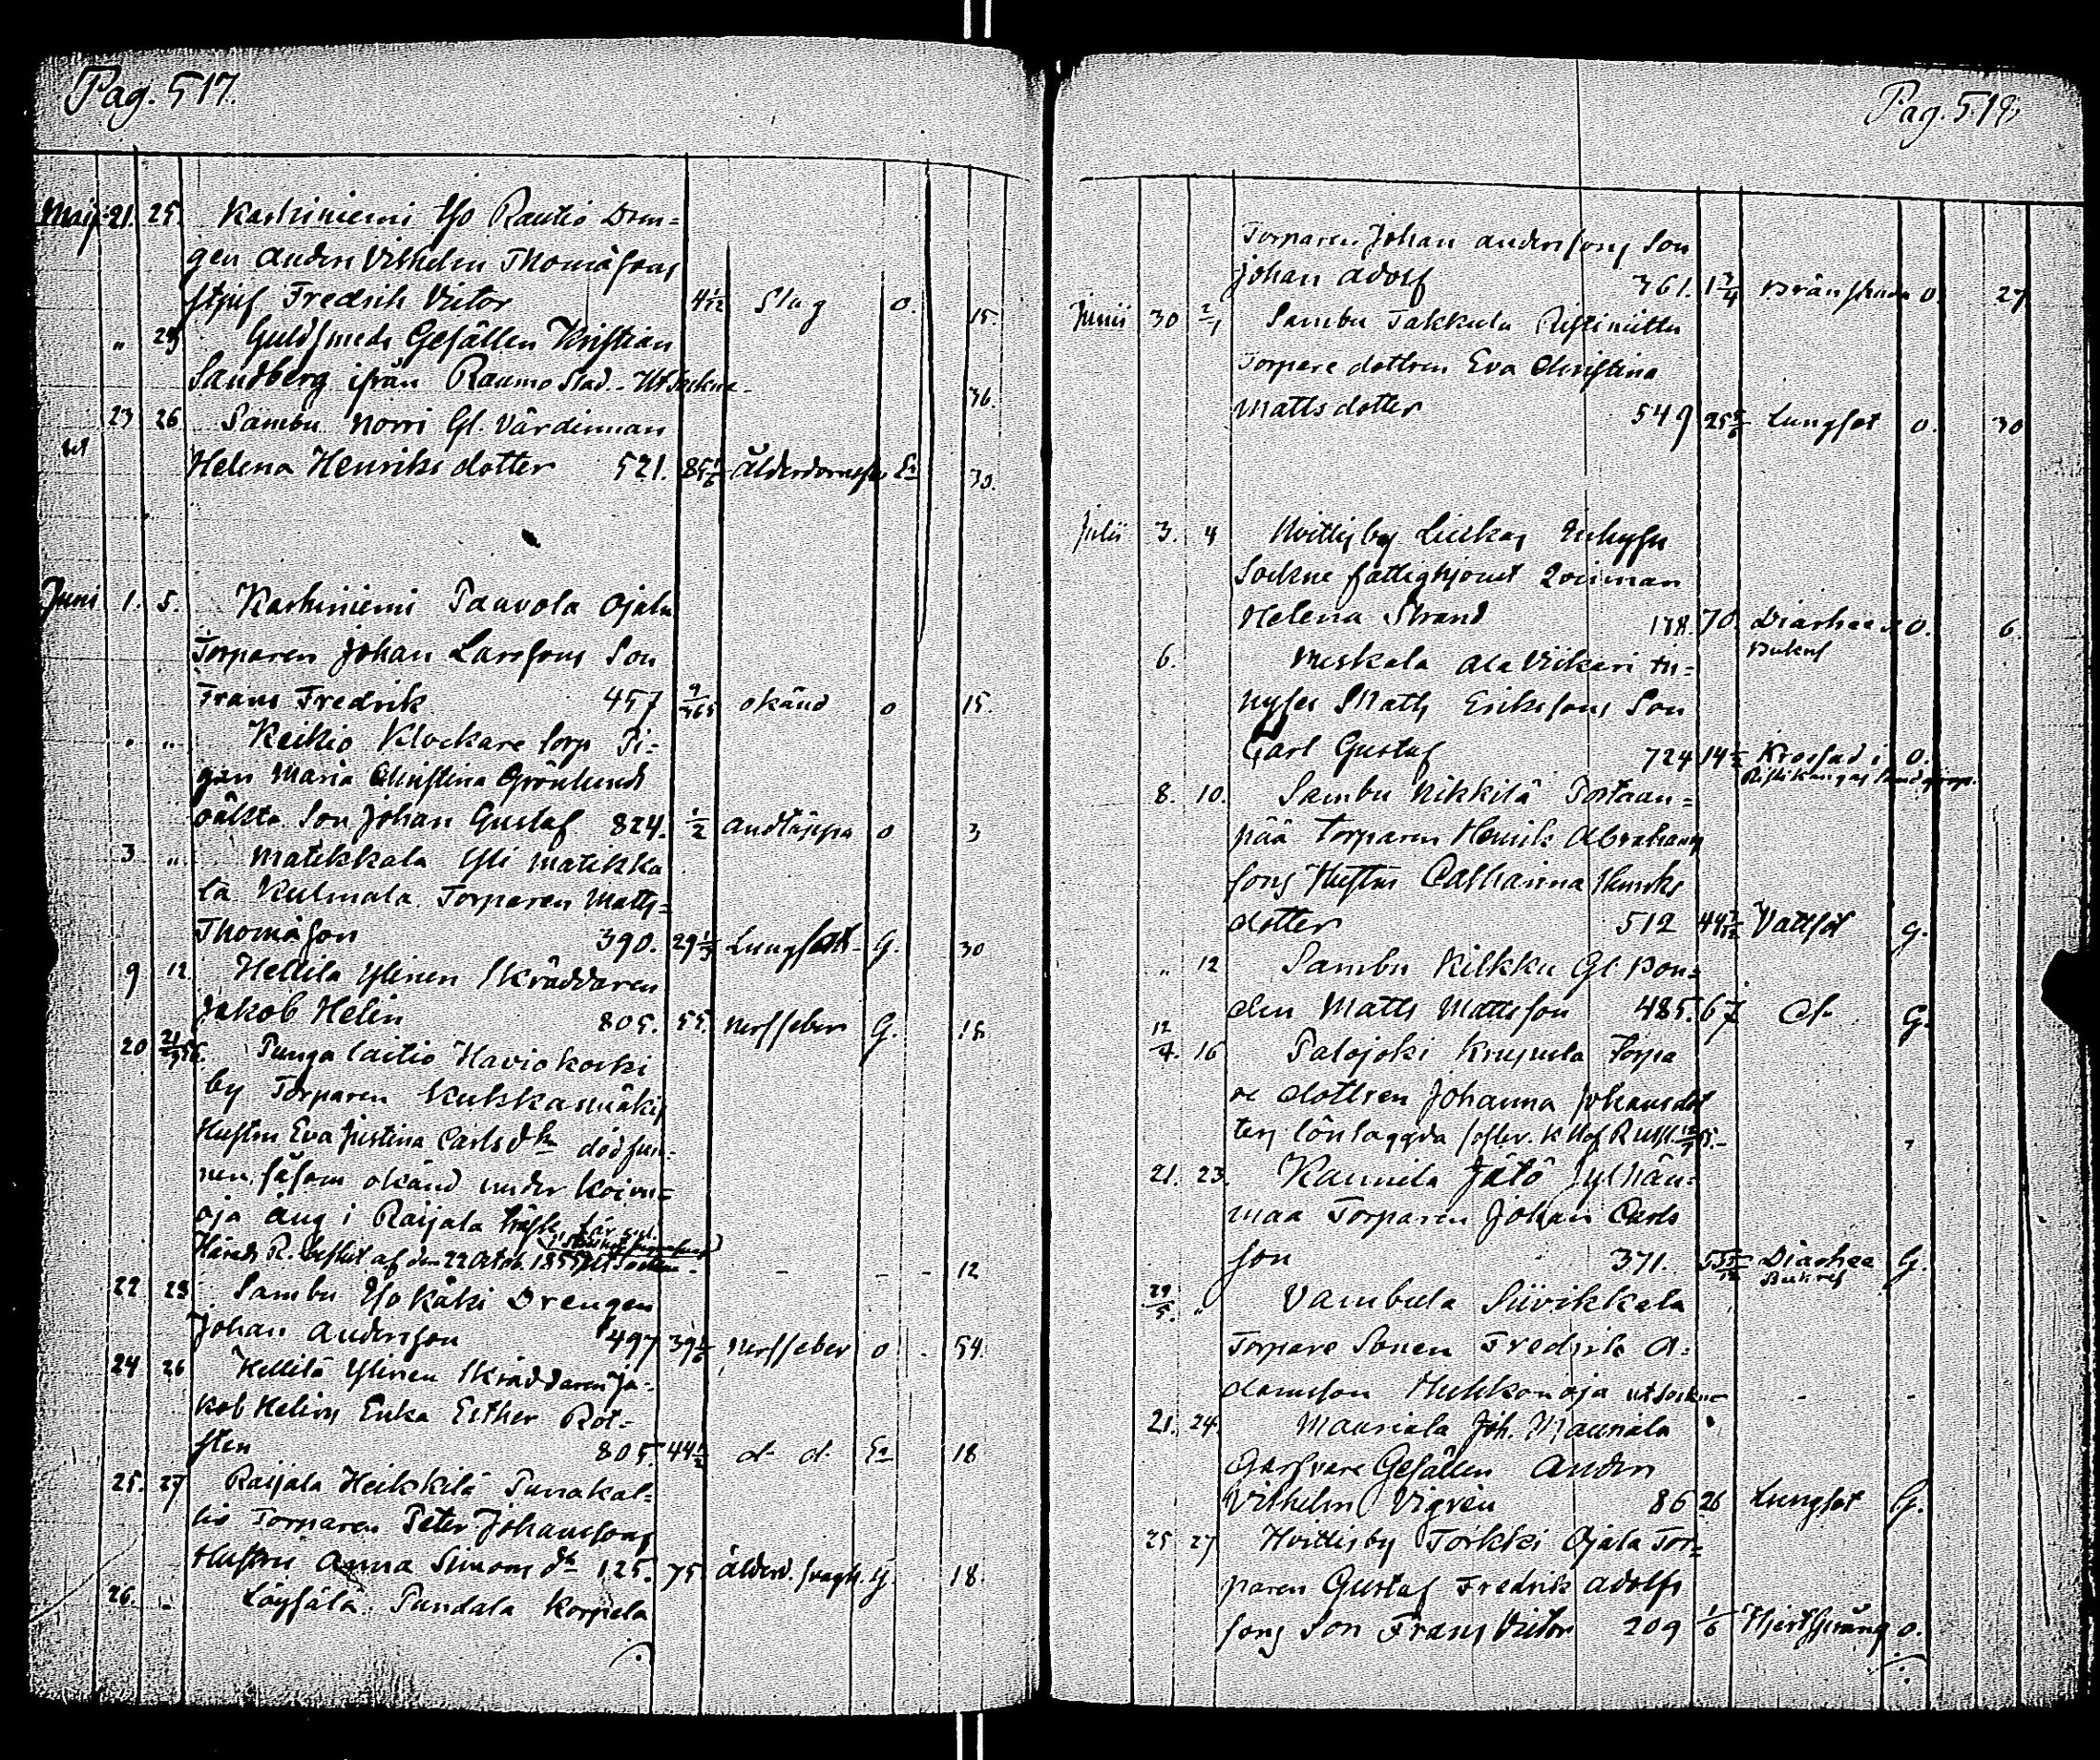 Pag. 517.
Maij 21. 25. Karhiniemi Yso Rautio Drän=
gen Anders Vilhelm Thomåsons
Fredrik Victor 4 1/12 Slag o. 15.
" 29 Guldsmeds Gesällen Kristian
Sandberg ifrån Raumo Stad. Utsockne - 36.
23 26 Sambu Norri Gl. Värdinnan
Helena Henriks dotter 521. 85 1/6 Ålderdomssv Ea 30.
Juni 1. 5. Karhiniemi Paavola Ojala
Torparen Johan Larssons Son
Frans Fredrik 457 9/365 okänd o 15.
" " Keikio Klockare torp Pi=
gan Maria Christina Grönlunds
oäkta Son Johan Gustaf 824. 1/2 andtäppa o 3
3 " Matikkala Yli Matikka
la Kulmala Torparen Matts
Thomåson 390. 29 1/3 Lungsot G. 30
9 12. Hellilä Ylinen Skräddaren
Jakob Helin 805. 55. Nerffeber G. 18
20 Punga laitio Haviokoski
by Torparen Kukkamäkis
Hustru Eva Justina Carlsdtr död fun=
nen såsom okänd under Koivu=
oja äng i Raijala
Härads R. Utslut af den 22 Octob. 1855 Utsockne - - - - 12
22 28 Sambu Yso Käki Drengen
Johan Andersson 497 39 1/6 Nerffeber o - 54.
24 26 Hellilä Ylinen Skräddaren Ja=
kob Helins Enka Esther Rot=
sten 805. 44 1/2 d. d. Ea 18
25. 27 Raijala Heikkilä Punakal=
lio Torparen Peter Johanssons
Hustru Anna Simonsdr 125. 75. Ålderd. svagh. G. 18.
26. " Löysälä Pundala Korpela
Pag. 518
Torparen Johan Anderssons Son
Johan Adolf 361. 1 3/4 Bränskada o. 27
Junii 30 2/1 Sambu Takkula Ristiniittu
Torpare dottren Eva Christina
Mattsdotter 549 25 5/6 Lungsot o. 30
Julii 3. 4 Hvittisby Liuskas Inhyses
Sockne fattighjonet Qvinnan
Helena Strand 178. 70. Diarhee o. 6.
Bukref
6. Meskala Ala Viikari In=
hyses Matts Erikssons Son
Carl Gustaf 724 14 1/2 Krossad i o.
Ristikangas
8. 10. Sambu Nikkilä Portaan=
pää Torparen Henrik Abrahams
sons Hustru Catharina Henriks
dotter 512 44 Vattsot G.
" 12 Sambu Kilkku Gl. Bon=
den Matts Mattsson 485. 67 d:o G.
12/4. 16 Palojoki Krupula Torpa
re dottren Johanna Johansdot
ters lönlaggda foster. K. Hof R. Utsl.
21. 23. Kaunila Jätö Jylhän=
maa Torparen Johan Carls
son 371. 55 Diarhee G.
Bukref
29/5. " Vambula Siivikkala
Torpare Sonen Fredrik A=
damsson Huhkonoja utsockne - -
21. 24. Mauriala Joh. Mauriala
Garfvare Gesällen Anders
Vilhelm Vigrén 86 26 Lungsot G.
25 27 Hvittisby Torkki Ojala Tor=
paren Gustaf Fredrik Adolfs
sons Son Frans Victor 209 1/6 Hjertsprång o.